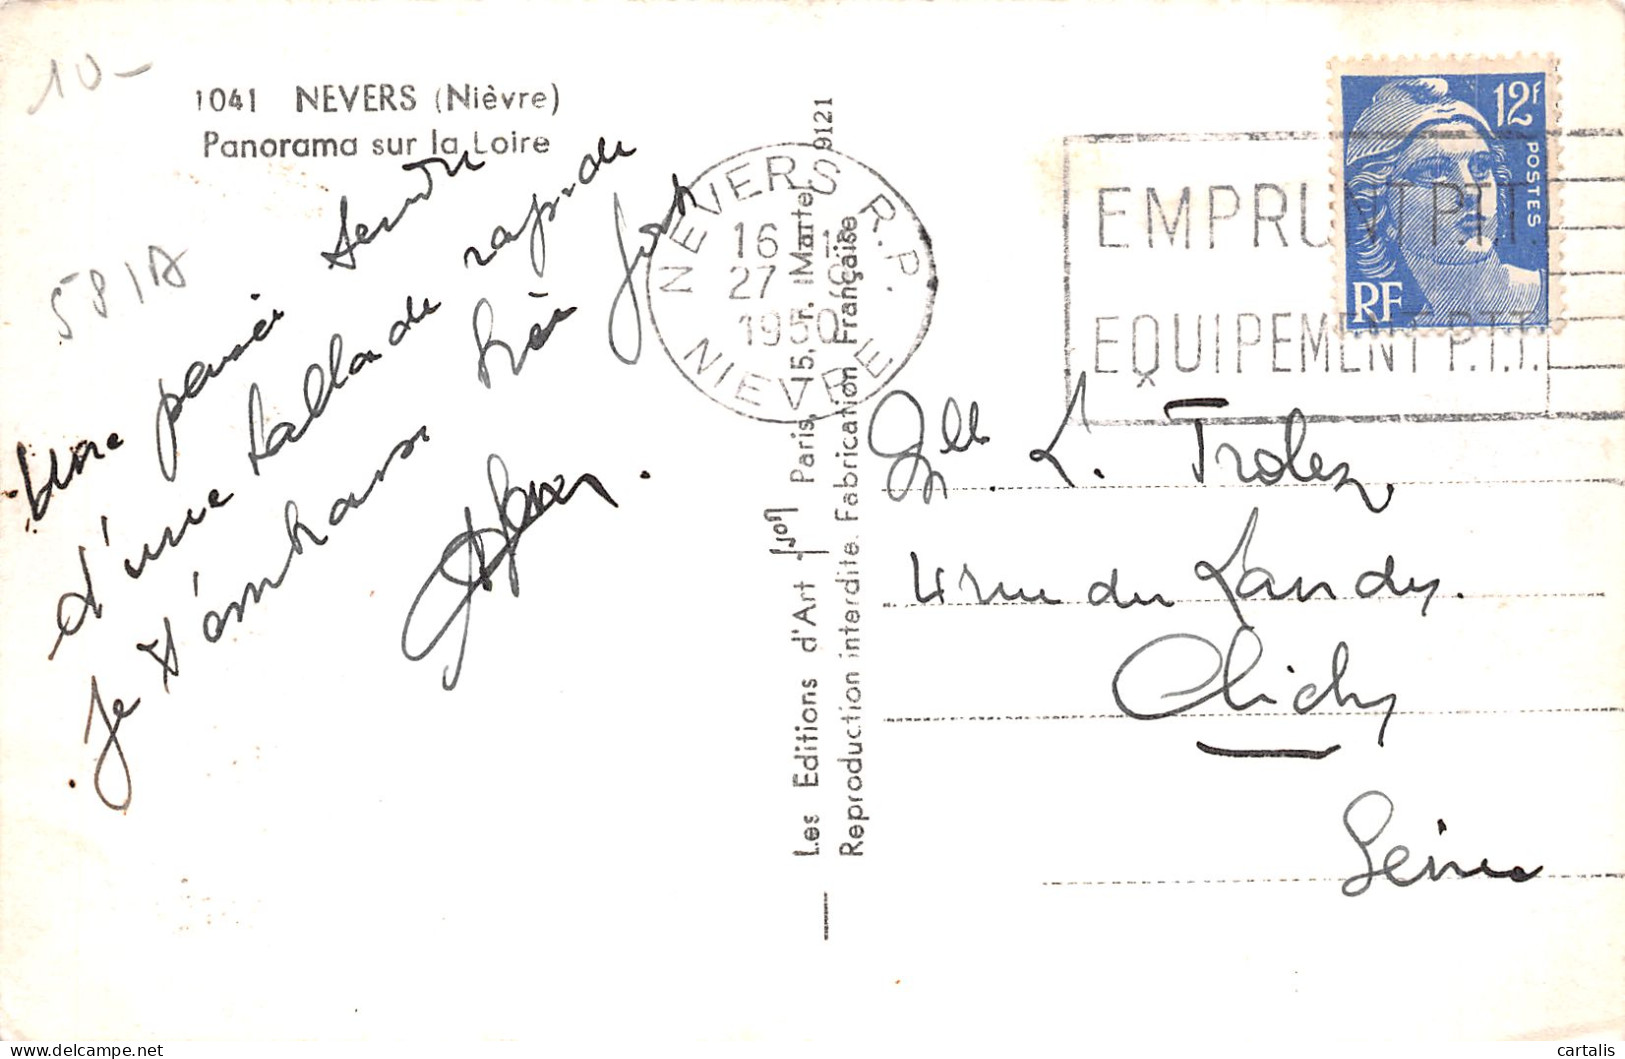 10-
1041 NEVERS (Nièvre)
Panorama sur la Loire
581A
Une pensée
d'une ballade rapide
Je t'embrasse bien fort
Les Editions d'Art YVON Paris, 15, r. Martel. 9121
Reproduction interdite. Fabrication Française
NEVERS R.P.
16
27
1950
NIEVRE
EMPRUNT P.T.T.
EQUIPEMENT P.T.T.
12F
POSTES
RF
Mlle L. Trolez
4 rue du Landy.
Clichy
Seine
cartalis